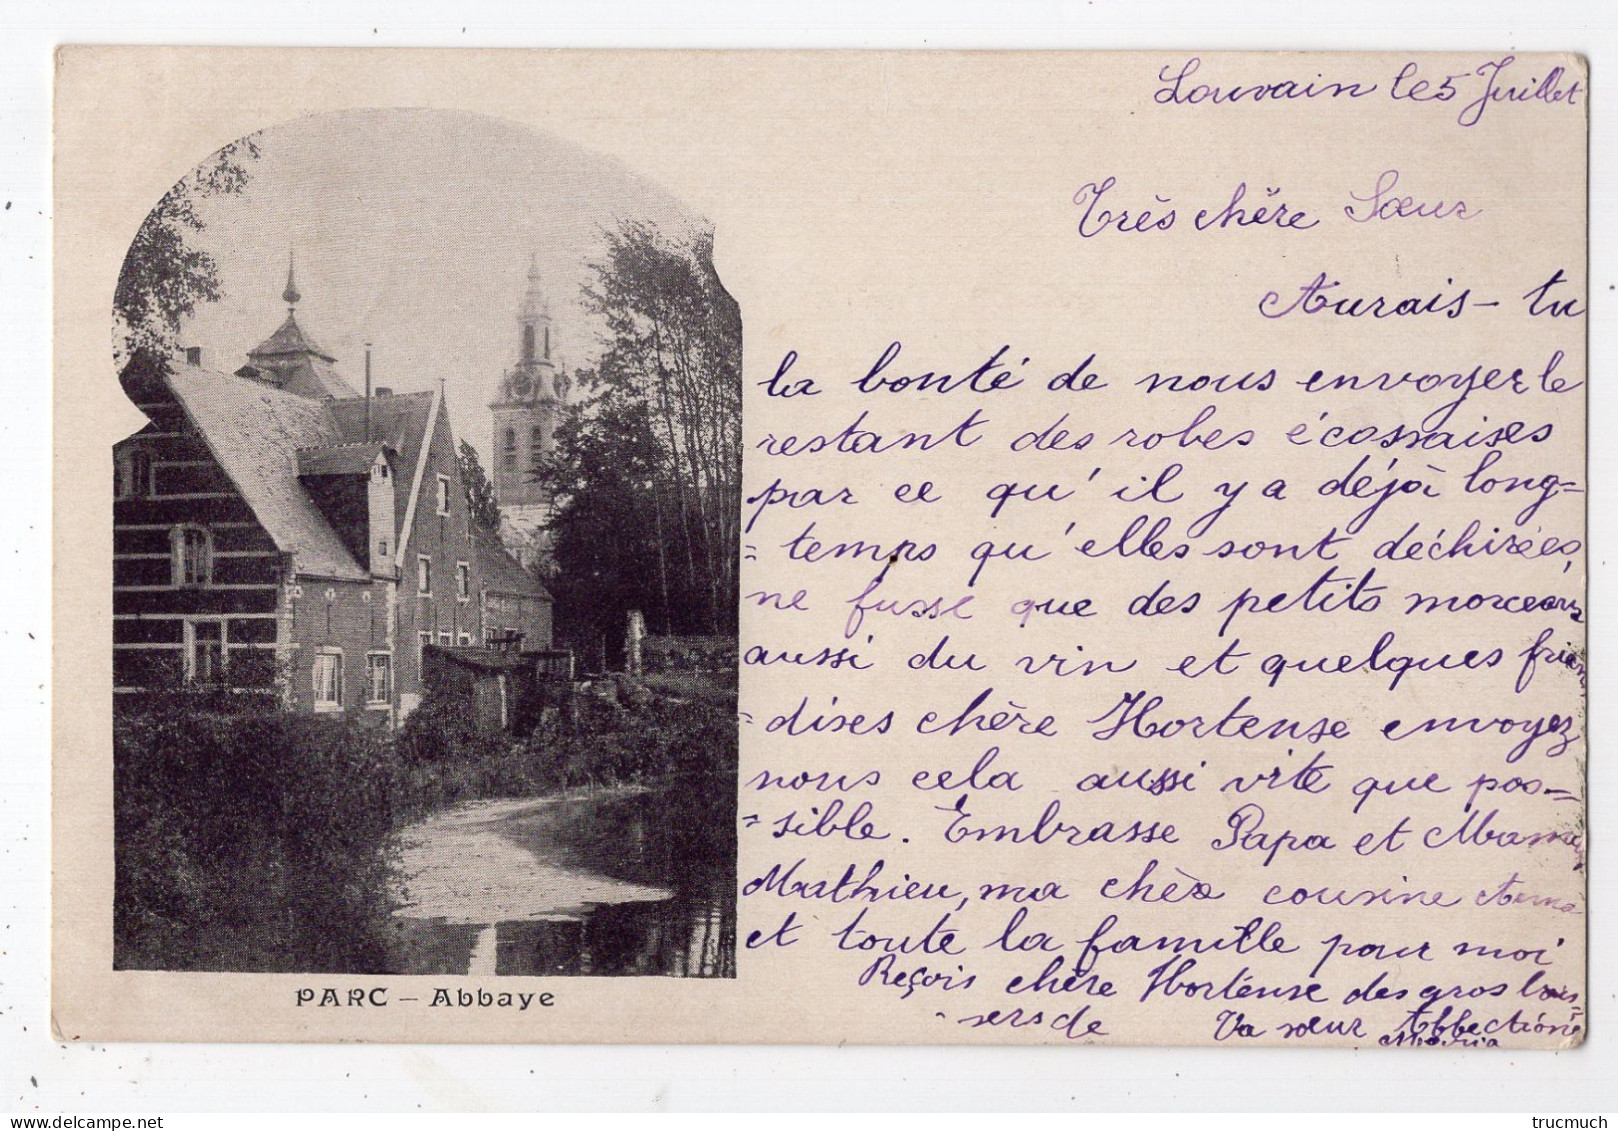 Louvain le 5 Juillet
Très chère Sœur
Aurais-tu
la bonté de nous envoyer le
restant des robes écossaises
par ce qu'il y a déjà long=
=temps qu'elles sont déchirées,
ne fusse que des petits morceaux
aussi du vin et quelques frian
=dises chère Hortense envoyez
nous cela aussi vite que pos=
=sible. Embrasse Papa et Maman
Mathieu, ma chère cousine Anna
et toute la famille pour moi
Reçois chère Hortense des gros bais=
-sers de Ta sœur Affectionée
Maria
PARC – Abbaye
trucmuch